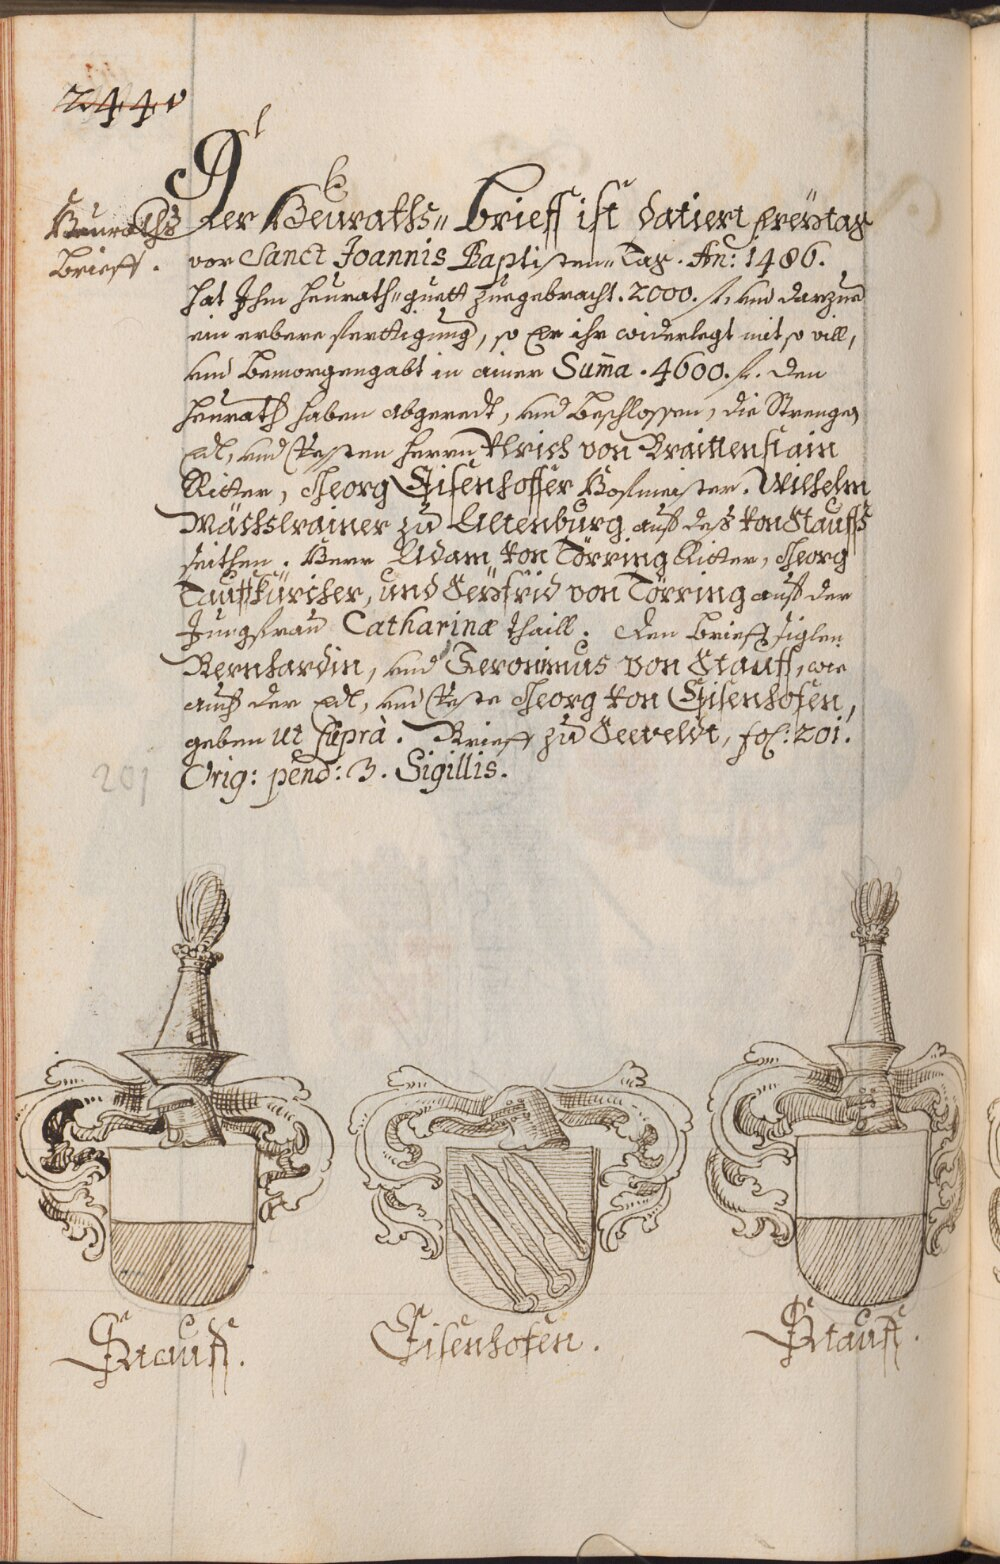 244v
Heuraths
Brieff.
Der Heuraths- brieff ist datiert freÿtag
vor Sanct Joannis Baptisten- Tag. An: 1486.
hat Ihm heurath- guett zuegebracht. 2000. fl. und darzue
ein erbere ferttigung, so Er ihr widerlegt mit so vill,
und bemorgengabt in ainer Sum̃a. 4600. fl. den
heurath haben abgeredt, und beschlossen, die Strengen
Edl, und Vesten herrn Ulrich von Braittenstain
Ritter, Georg Eisenhoffer Hofmeister. Wilhelm
Mächslrainer zu Altenburg auff deß von Stauffs
seithen. Herr Adam von Törring Ritter, Georg
Tauffkürcher, und Seÿfrid von Törring auff der
Jungfrau Catharinæ thaill. Den brieff siglen
Bernhardin, und Jeronimus von Stauff, wie
auch der Edl, und Veste Georg von Eisenhofen,
geben ut suprà. Brieff zu Seeveldt, fol: 201.
Orig: pend: 3. Sigillis.
201
Stauff.
Eisenhofen.
Stauff.